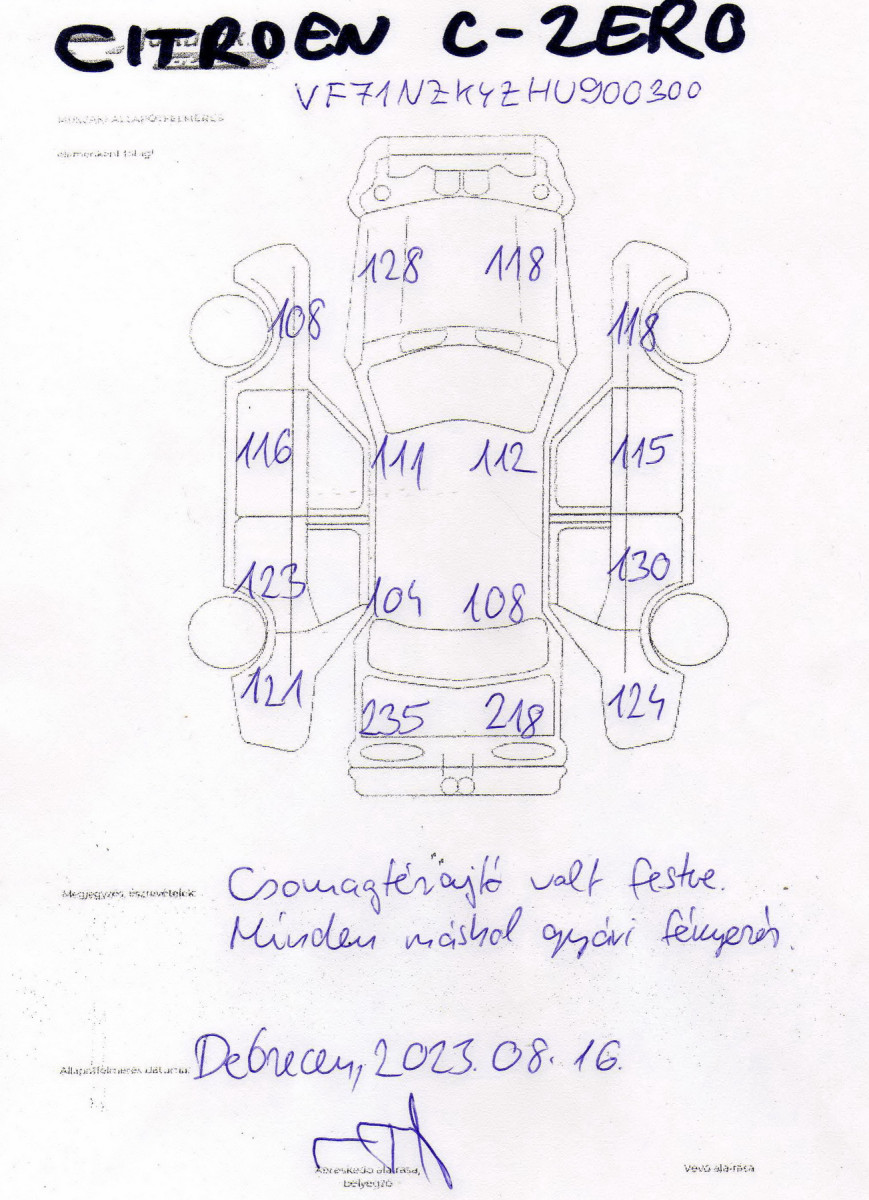 CITROEN C-ZERO
VF71NZKYZHU900300
MŰSZAKI ÁLLAPOTFELMÉRÉS
128 118
108 118
116 111 112 115
123 104 108 130
121 124
235 218
Megjegyzés, észrevételek: Csomagtérajtó volt festve.
Minden máshol gyári fényezés.
Állapotfelmérés dátuma: Debrecen, 2023. 08. 16.
Kereskedő aláírása, Vevő aláírása
bélyegző